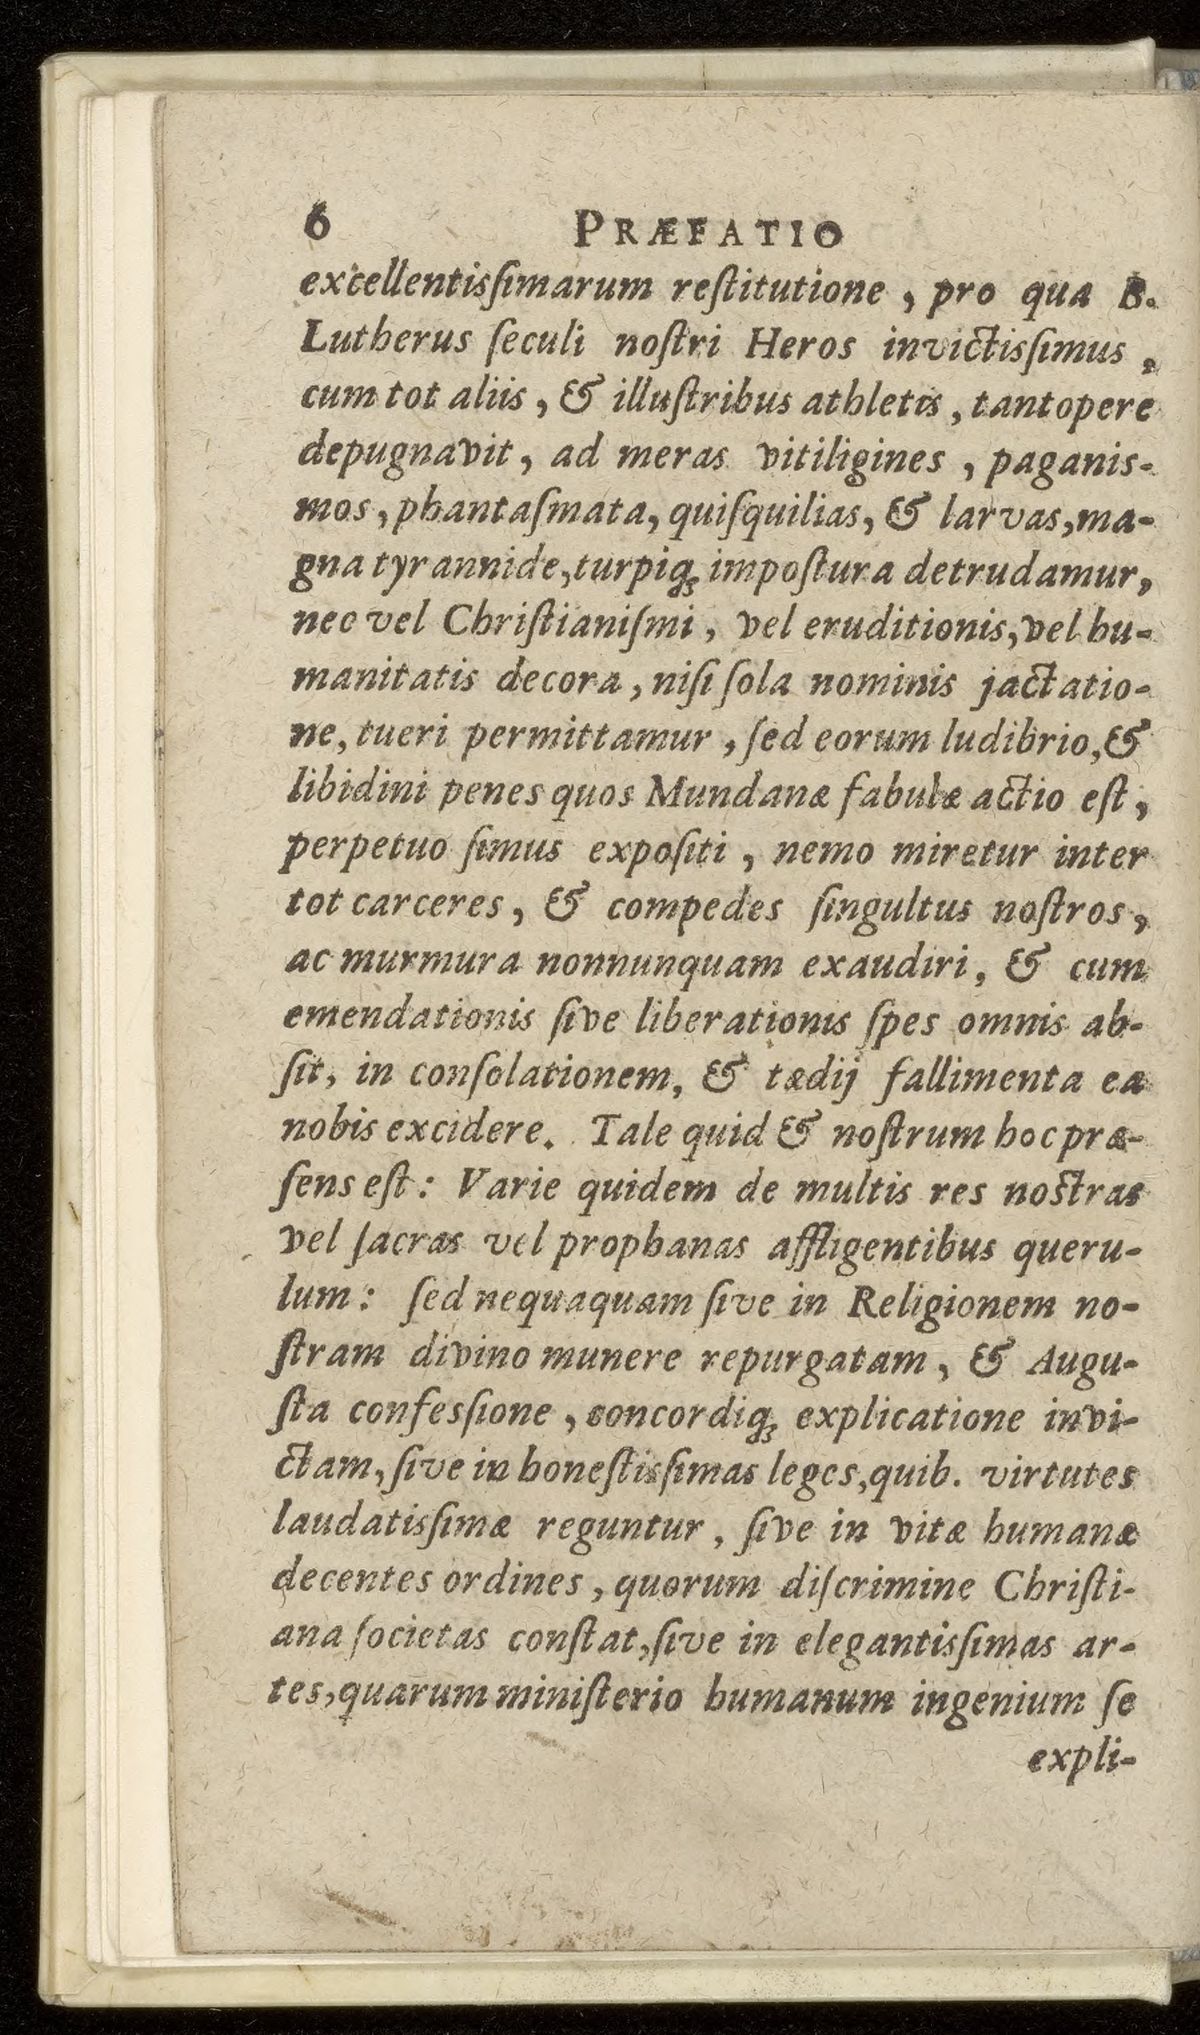 6 PRÆFATIO
excellentisſimarum reſtitutione, pro qua B.
Lutherus ſeculi noſtri Heros invictisſimus,
cum tot aliis, & illuſtribus athletis, tantopere
depugnavit, ad meras vitiligines, paganis-
mos, phantaſmata, quiſquilias, & larvas, ma-
gna tyrannide, turpiq; impoſtura detrudamur,
nec vel Chriſtianiſmi, vel eruditionis, vel hu-
manitatis decora, niſi ſola nominis jactatio-
ne, tueri permittamur, ſed eorum ludibrio, &
libidini penes quos Mundanæ fabulæ actio eſt,
perpetuo ſimus expoſiti, nemo miretur inter
tot carceres, & compedes ſingultus noſtros,
ac murmura nonnunquam exaudiri, & cum
emendationis ſive liberationis ſpes omnis ab-
ſit, in conſolationem, & tædij fallimenta ea
nobis excidere. Tale quid & noſtrum hoc præ-
ſens eſt: Varie quidem de multis res nostras
vel ſacras vel prophanas affligentibus queru-
lum: ſed nequaquam ſive in Religionem no-
ſtram divino munere repurgatam, & Augu-
ſta confesſione, concordiq; explicatione invi-
ctam, ſive in honeſtisſimas leges, quib. virtutes
laudatisſimæ reguntur, ſive in vitæ humanæ
decentes ordines, quorum diſcrimine Chriſti-
ana ſocietas conſtat, ſive in elegantisſimas ar-
tes, quarum miniſterio humanum ingenium ſe
expli-